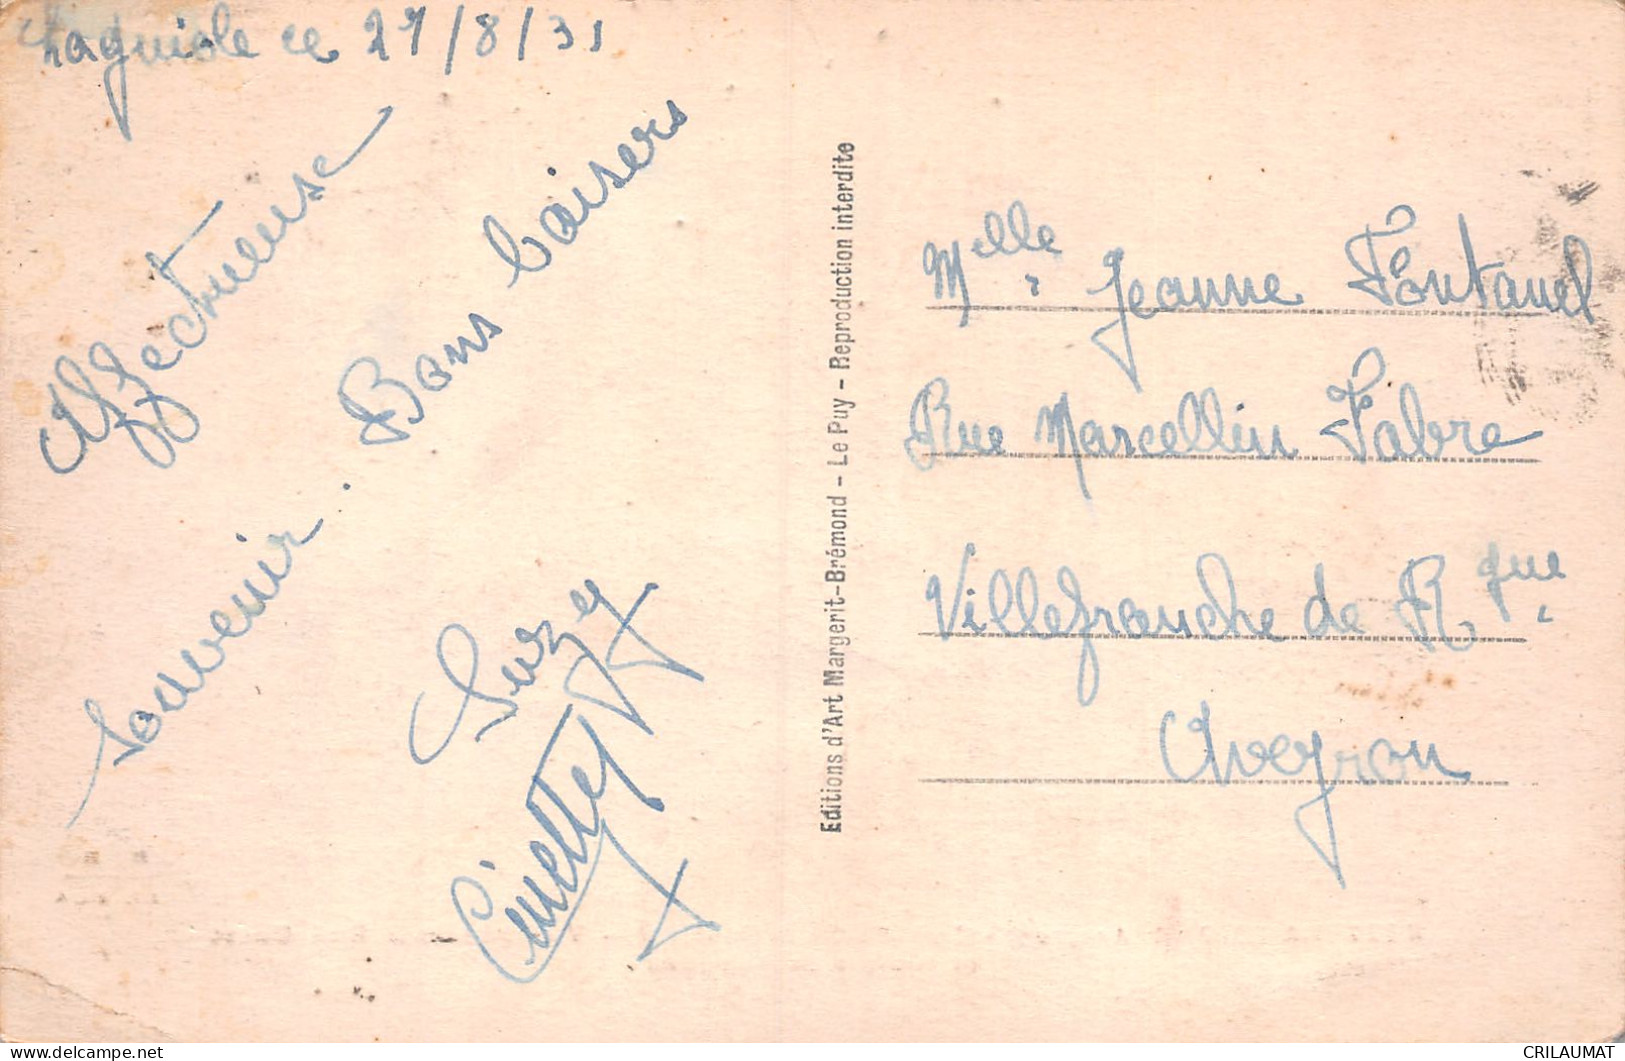 Laguiole ce 27/8/31
Affectueuse
Souvenir. Bons baisers
Suzy
Editions d'Art Margerit-Brémond - Le Puy - Reproduction interdite
Mlle. Jeanne Fontanel
Rue Marcellin Fabre
Villefranche de Rque.
Aveyron
CRILAUMAT